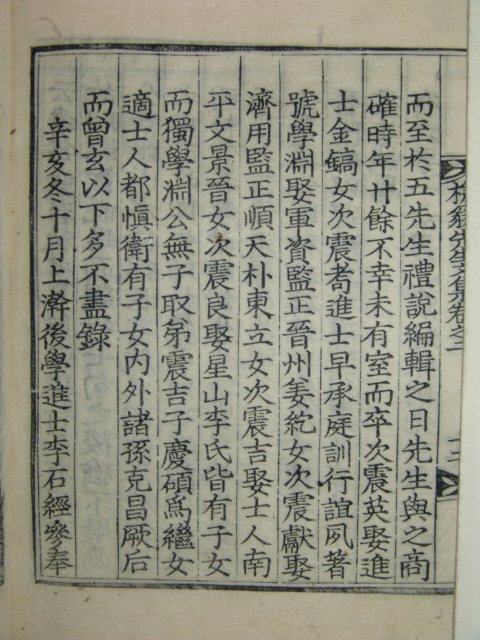 而至於五先生禮說編輯之日先生與之商
確時年廿餘不幸未有室而卒次震英娶進
士金鎬女次震喬進士早承庭訓行誼夙著
號學淵娶軍資監正晉州姜紞女次震獻娶
濟用監正順天朴東立女次震吉娶士人南
平文景晉女次震良娶星山李氏皆有子女
而獨學淵公無子取弟震吉子慶碩爲繼女
適士人都愼衛有子女內外諸孫克昌厥后
而曾玄以下多不盡錄
辛亥冬十月上澣後學進士李石經參奉
先生文集卷之二